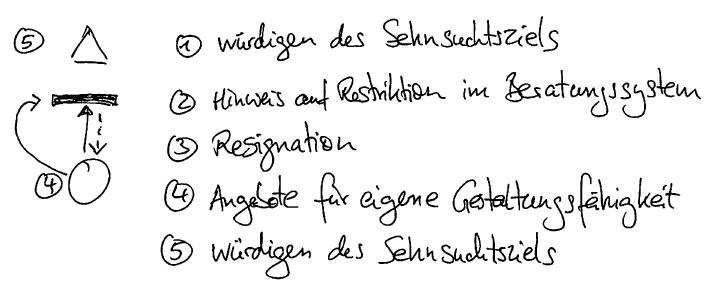 ⑤ ① würdigen des Sehnsuchtsziels
② Hinweis auf Restriktion im Beratungssystem
③ Resignation
④ ④ Angebote für eigene Gestaltungsfähigkeit
⑤ würdigen des Sehnsuchtsziels